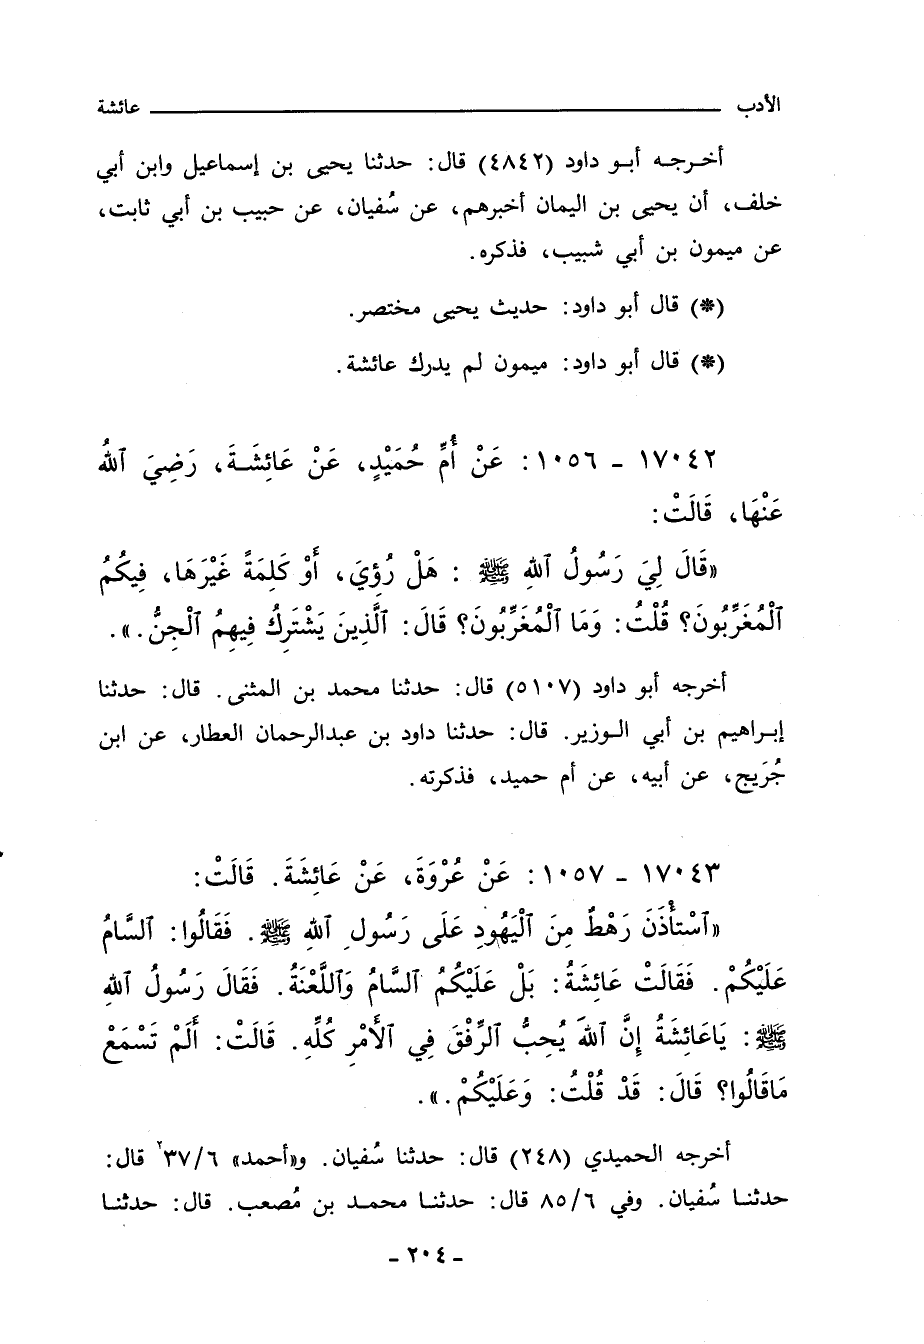 الأدب ــــــــــــــــــــ عائشة
أخرجه أبو داود (٤٨٤٢) قال: حدثنا يحيى بن إسماعيل وابن أبي
خلف، أن يحيى بن اليمان أخبرهم، عن سُفيان، عن حبيب بن أبي ثابت،
عن ميمون بن أبي شبيب، فذكره.
(*) قال أبو داود: حديث يحيى مختصر.
(*) قال أبو داود: ميمون لم يدرك عائشة.
١٧٠٤٢ - ١٠٥٦: عَنْ أُمِّ حُمَيْدٍ، عَنْ عَائِشَةَ، رَضِيَ ٱللَّهُ
عَنْهَا، قَالَتْ:
«قَالَ لِيَ رَسُولُ ٱللهِ ﷺ : هَلْ رُؤِيَ، أَوْ كَلِمَةً غَيْرَهَا، فِيكُمُ
ٱلْمُغَرِّبُونَ؟ قُلْتُ: وَمَا ٱلْمُغَرِّبُونَ؟ قَالَ: ٱلَّذِينَ يَشْتَرِكُ فِيهِمُ ٱلْجِنُّ.».
أخرجه أبو داود (٥١٠٧) قال: حدثنا محمد بن المثنى. قال: حدثنا
إبراهيم بن أبي الوزير. قال: حدثنا داود بن عبدالرحمان العطار، عن ابن
جُرَيج، عن أبيه، عن أم حميد، فذكرته.
١٧٠٤٣ - ١٠٥٧: عَنْ عُرْوَةَ، عَنْ عَائِشَةَ. قَالَتْ:
«ٱسْتَأْذَنَ رَهْطٌ مِنَ ٱلْيَهُودِ عَلَى رَسُولِ ٱللهِ ﷺ. فَقَالُوا: ٱلسَّامُ
عَلَيْكُمْ. فَقَالَتْ عَائِشَةُ: بَلْ عَلَيْكُمُ ٱلسَّامُ وَٱللَّعْنَةُ. فَقَالَ رَسُولُ ٱللهِ
ﷺ: يَاعَائِشَةُ إِنَّ ٱللهَ يُحِبُّ ٱلرِّفْقَ فِي ٱلأَمْرِ كُلِّهِ. قَالَتْ: أَلَمْ تَسْمَعْ
مَاقَالُوا؟ قَالَ: قَدْ قُلْتُ: وَعَلَيْكُمْ.».
أخرجه الحميدي (٢٤٨) قال: حدثنا سُفيان. و«أحمد» ٣٧/٦ قال:
حدثنا سُفيان. وفي ٨٥/٦ قال: حدثنا محمد بن مُصعب. قال: حدثنا
- ٢٠٤ -